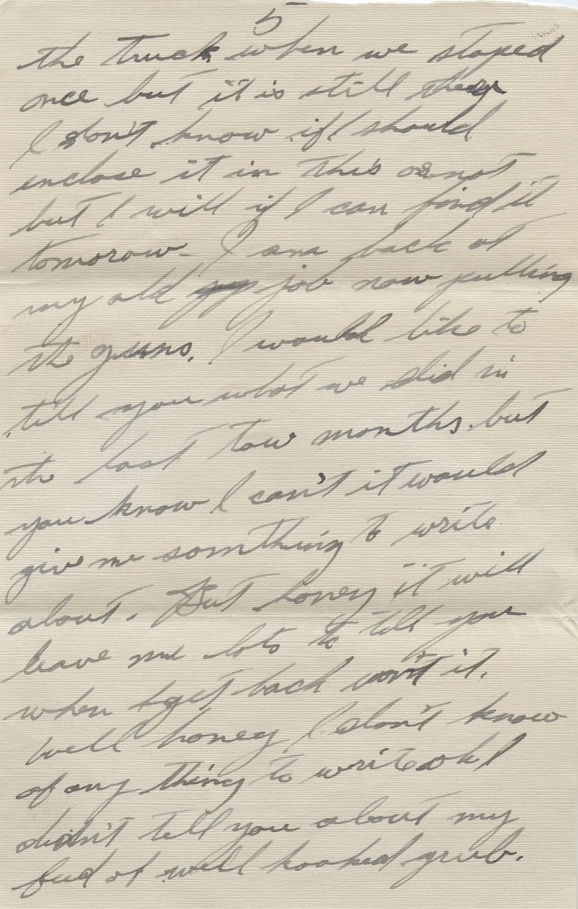 5
the truck when we stoped
once but it is still
I don't know if I should
enclose it in this or not
but I will if I can find it
tomorow - I am back at
my old job now pulling
the guns. I would like to
tell you what we did in
the last tow months. but
you know I can't it would
give me something to write
about. But honey it will
leave me lots to tell you
when I get back won't it.
Well honey I don't know
of any thing to write oh I
didn't tell you about my
bud of well kooked grub.